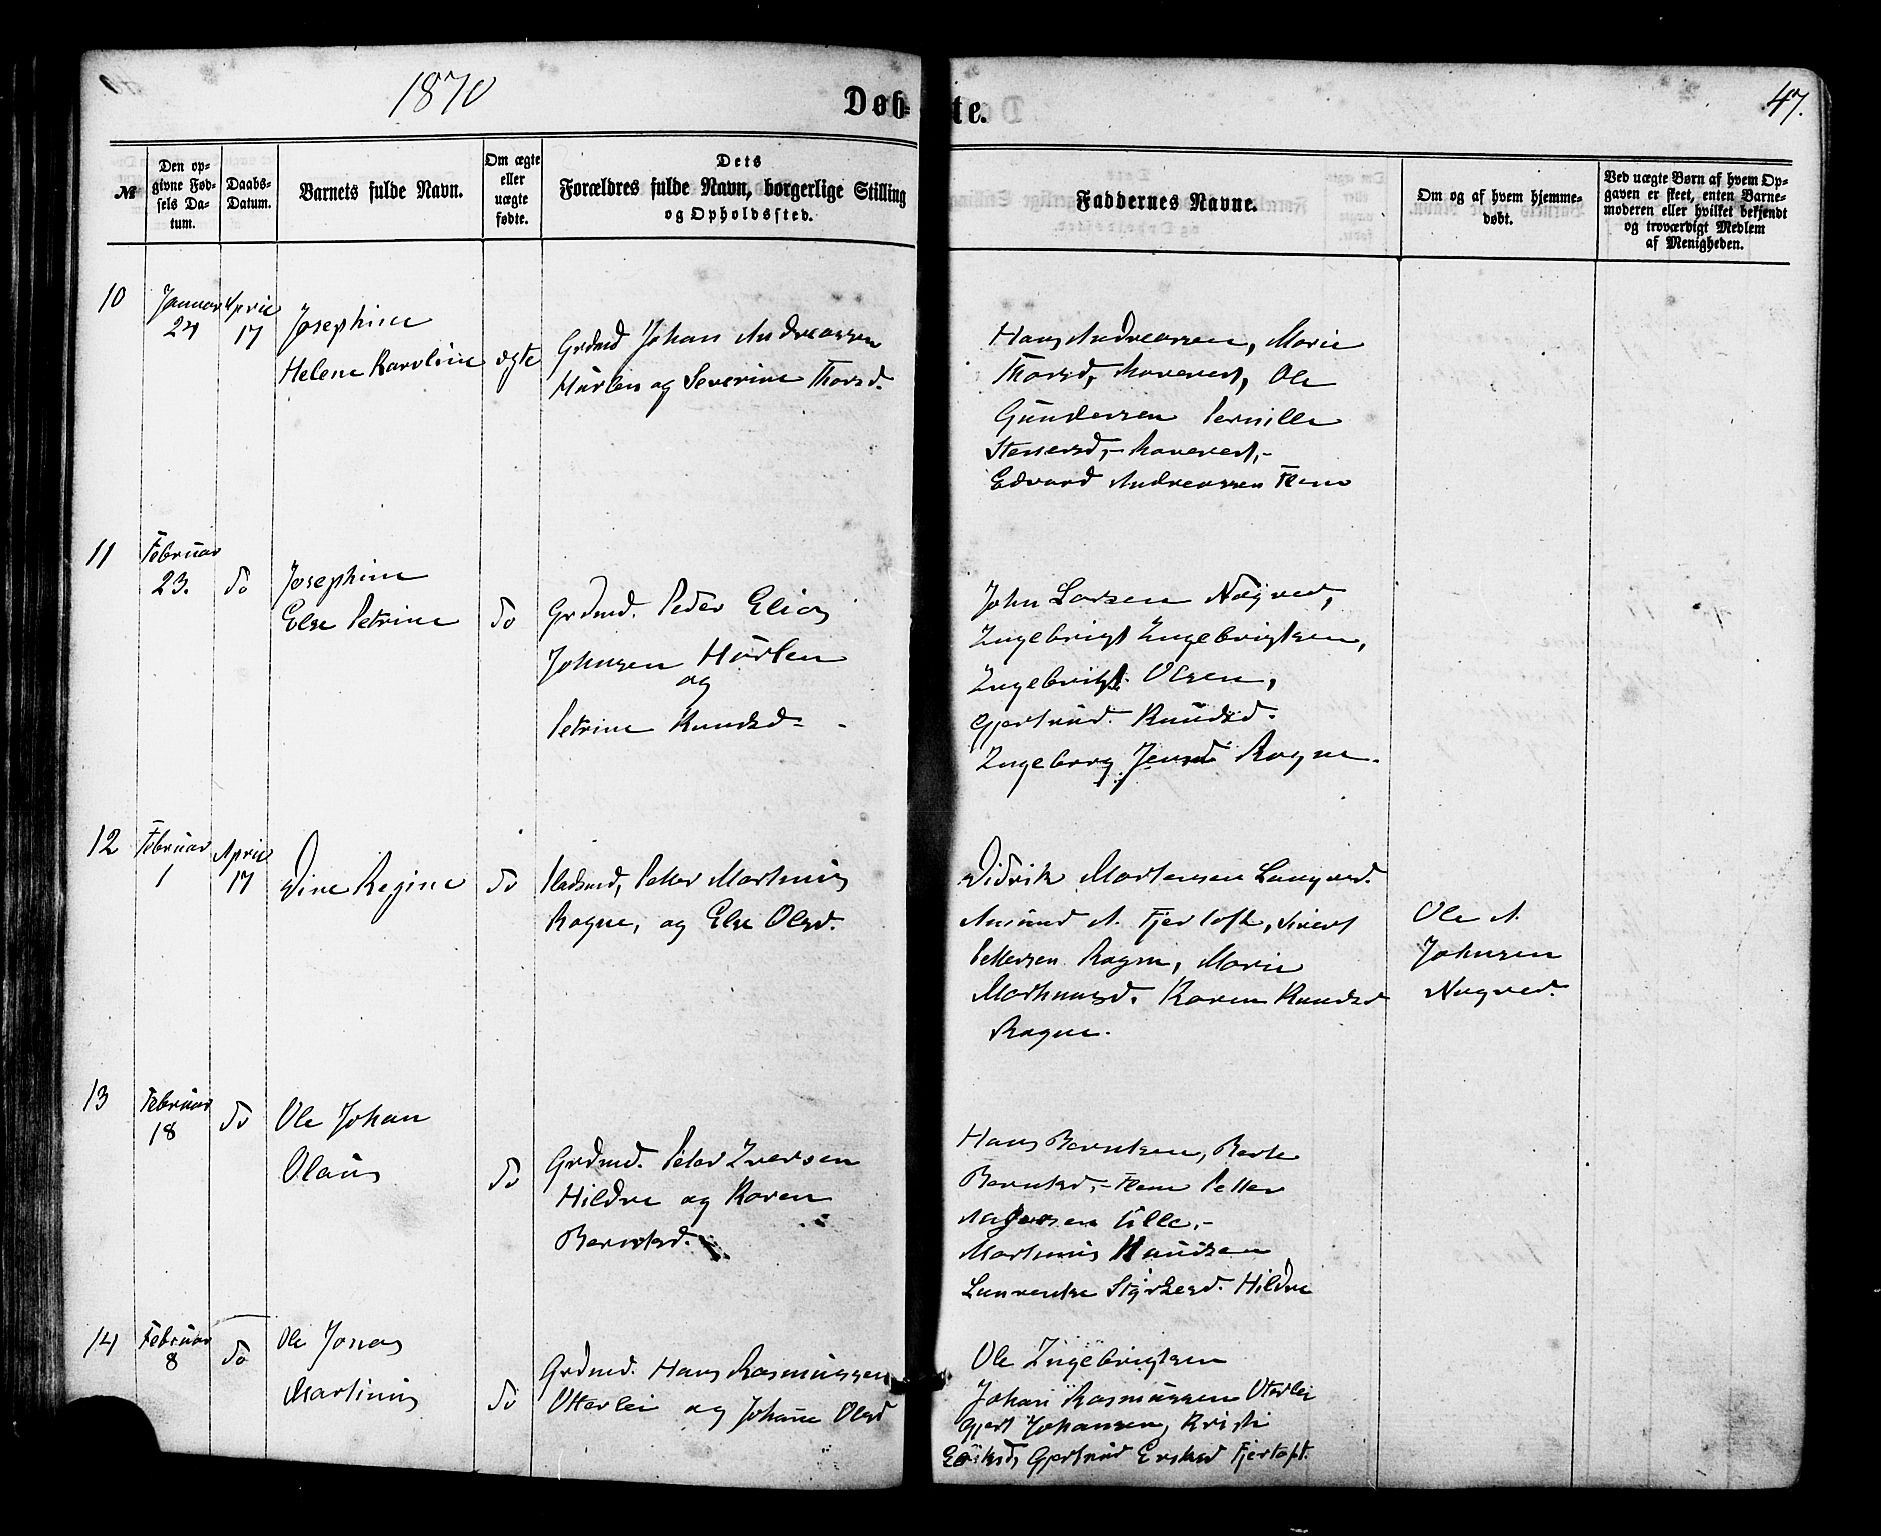 1870
Døb-
te.
47.
№
Den op-
givne Fød-
sels Da-
tum.
Daabs-
Datum.
Barnets fulde Navn.
Om ægte
eller
uægte
fødte.
Dets
Forældres fulde Navn, borgerlige Stilling
og Opholdssted.
Faddernes Navne.
Om og af hvem hjemme-
døbt.
Ved uægte Børn af hvem Op-
gaven er skeet, enten Barne-
moderen eller hvilket bekjendt
og troværdigt Medlem
af Menigheden.
10
Januar
24
April
17
Josephine
Helene Karoline
ægte
Grdmd Johan Andreassen
Hurlen og Severine Thorsd.
Hans Andreassen, Marie
Thorsd, Ole
Gundersen Pernille
Edvard Andreassen Flem
11
Februar
23.
do
Josephine
Else Petrine
do
Grdmd. Peder Elias
Johnsen Hurlen
og
Petrine Knudsd
John Larsen Nogved,
Ingebrigt Ingebrigtsen,
Ingebrigt Olsen,
Gjertrud. Knudsd.
Ingeborg Jensd Rogne.
12
Februar
1
April
17
Dine Regine
do
Pladsmd, Petter Martinus
Rogne, og Else Olsd.
Didrik Mortensen Longved.
Amund A. Fjertoft, Sivert
Pettersen Rogne, Marie
Martinusd. Karen Knudsd
Rogne.
Ole A.
Johnsen
Nogved.
13
Februar
18
do
Ole Johan
Olaus
do
Grdmd. Peter Iversen
Hildre og Karen
Berntsd.
Hans Berntsen, Berte
Berntsd, Flem Petter
Ulle.
Martinus Knudsen
Laurentse Styrkersd. Hildre
14
Februar
8
do
Ole Jonas
Martinus
do
Grdmd. Hans Rasmussen
Otterlei og Johane Olsd
Ole Ingebrigtsen
Johan Rasmussen Uterlei
Gjert Johansen, Kristi
Eriksd, Gjertrud Eriksd Fjertoft.